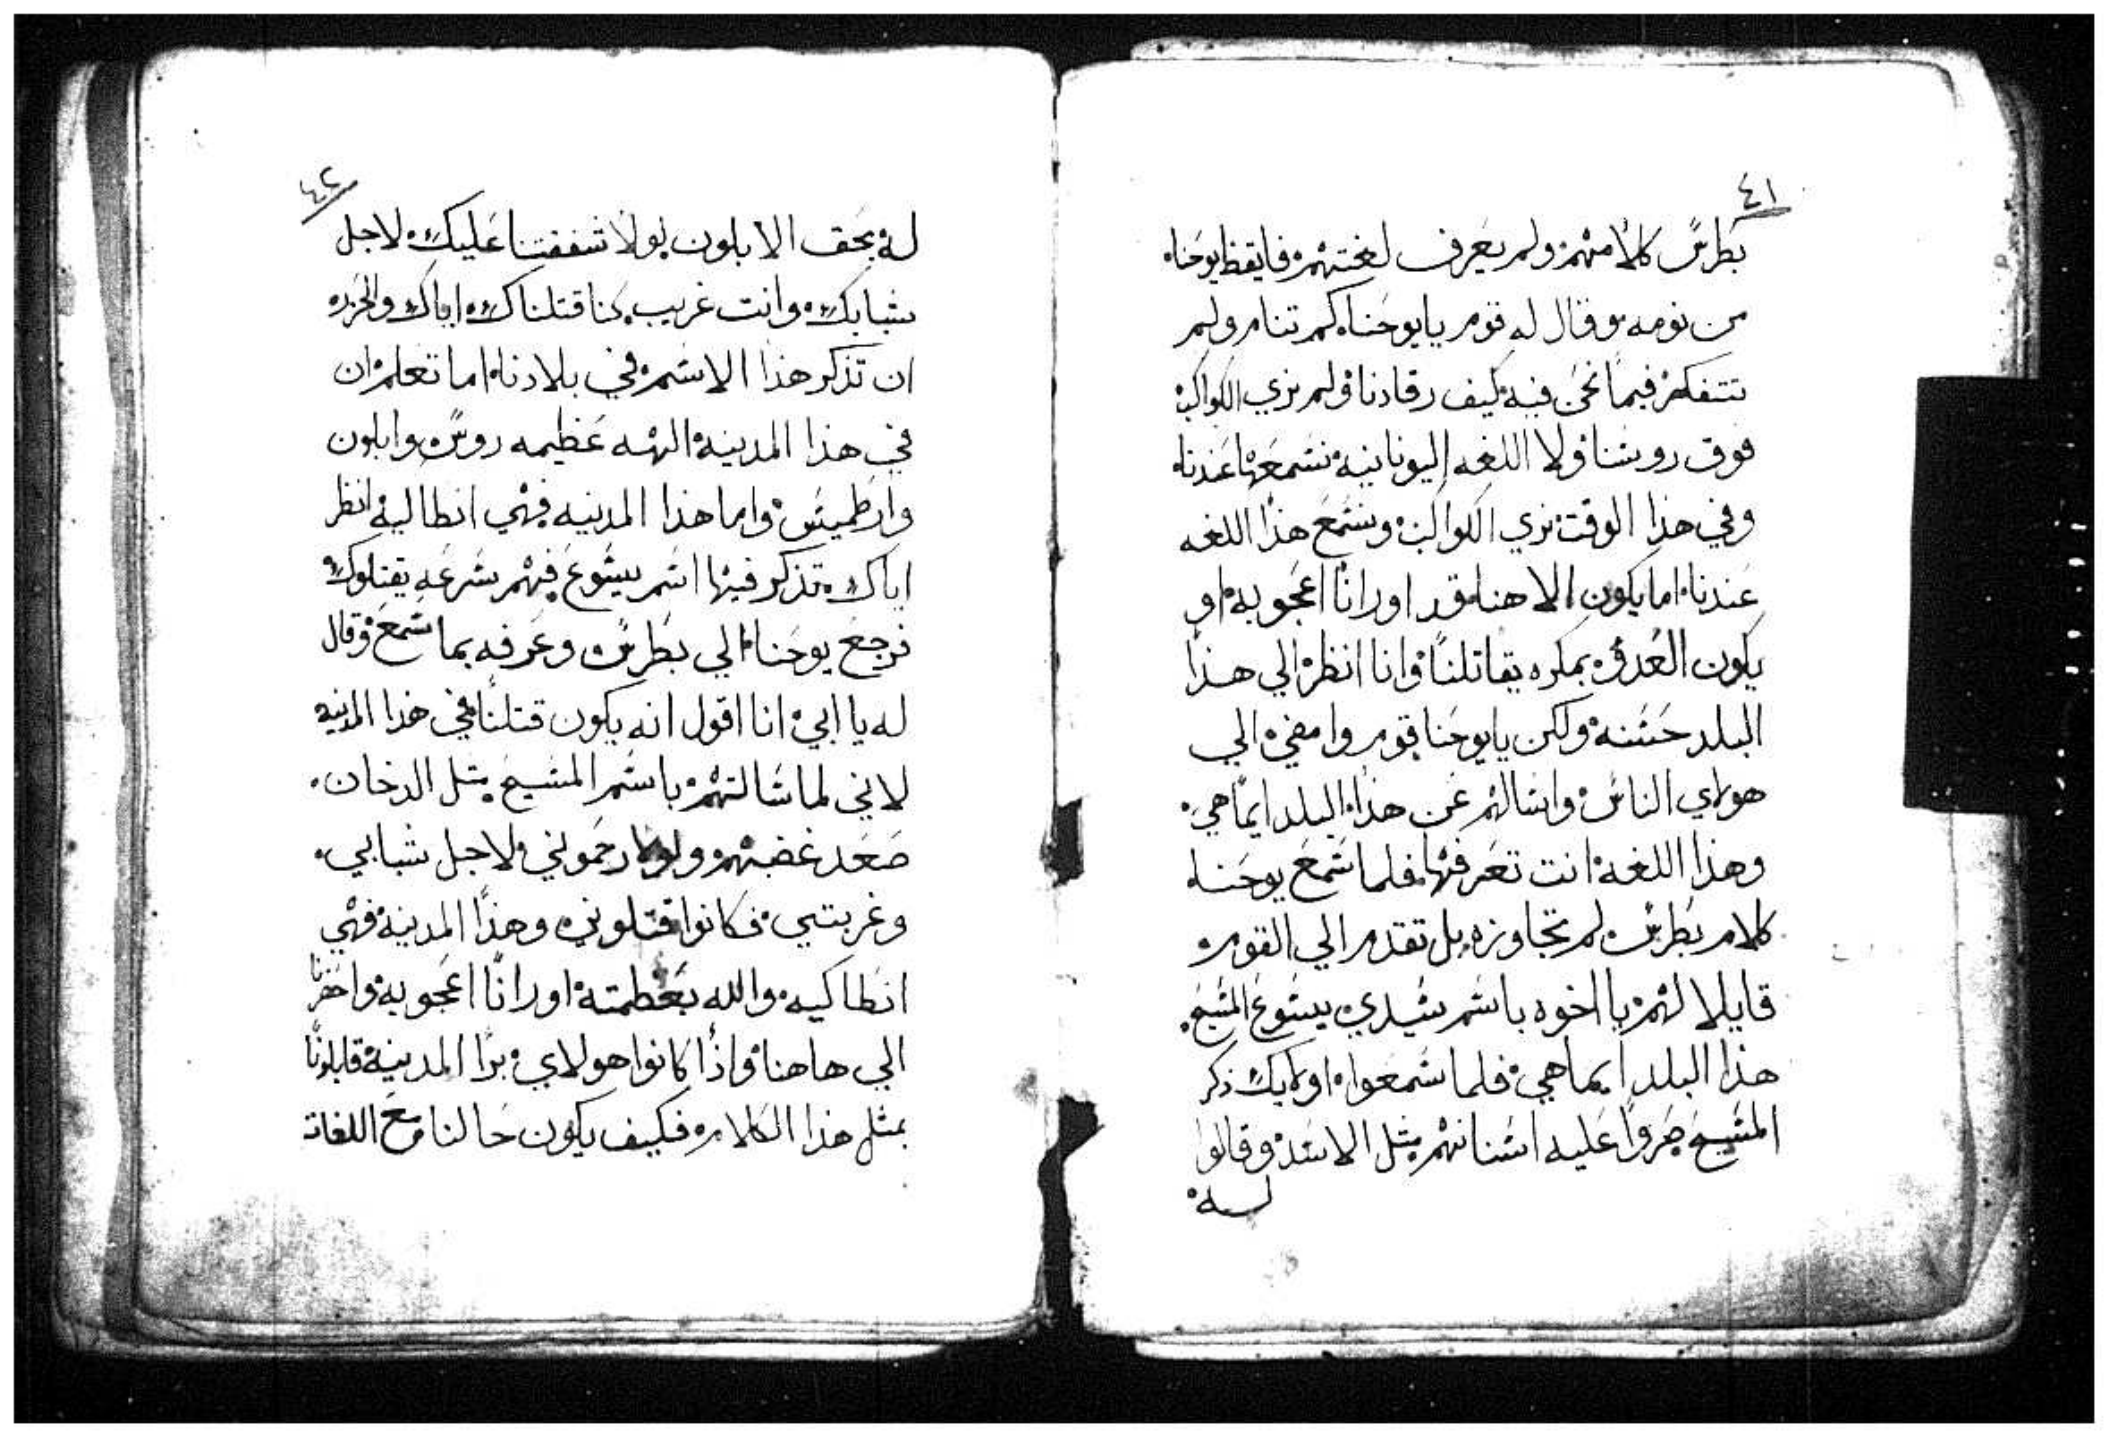 ٤١
بطرس كلامهم ولم يعرف لغتهم فايقظ يوحنا
من نومه وقال له قوم يا يوحنا كم تنام ولم
تتفكر فيما نحن فيه كيف رقادنا ولم نري الكواكب
فوق روسنا ولا اللغه اليونانيه نسمعها عندنا
وفي هذا الوقت نري الكواكب ونسمع هذا اللغه
عندنا اما يكون الاهنا قد اورانا اعجوبه او
يكون العدو بمكره يقاتلنا وانا انظر الي هذا
البلد حسنه ولكن يا يوحنا قوم وامضي الي
هولاي الناس واسالهم عن هذا البلد ايما هي
وهذا اللغه انت تعرفها فلما سمع يوحنا
كلام بطرس لم تجاوزه بل تقدم الي القوم
قايلا لهم يا اخوه باسم سيدي يسوع المسيح
هذا البلد ايما هي فلما سمعوا اوليك ذكر
المسيح صروا عليه اسنانهم مثل الاسد وقالوا
له
٤٢
له بحق الابلون لولا شفقتنا عليك لاجل
شبابك وانت غريب كنا قتلناك اياك والحزر
ان تذكر هذا الاسم في بلادنا اما تعلم ان
في هذا المدينة الهه عظيمه روس وابلون
وارطميس واما هذا المدينه فهي انطاليه انظر
اياك تذكر فيها اسم يسوع فهم بسرعه يقتلوك
فرجع يوحنا الي بطرس وعرفه بما سمع وقال
له يا ابي انا اقول انه يكون قتلنا في هذا المدينه
لاني لما سالتهم باسم المسيح مثل الدخان
صعد غضبهم ولولا رحموني لاجل شبابي
وغربتي فكانوا قتلوني وهذا المدينة فهي
انطاكيه والله بعظمته اورانا اعجوبه واحضرنا
الي هاهنا واذا كانوا هولاي برا المدينة قابلونا
بمثل هذا الكلام فكيف يكون حالنا مع اللغات